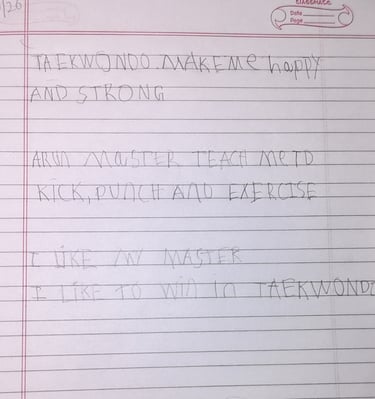 /26
classmate
Date
Page
TAEKWONDO MAKE ME happy
AND STRONG
ARUN MASTER TEACH ME TO
KICK, PUNCH AND EXERCISE
I LIKE MY MASTER
I LIKE TO WIN In TAEKWONDO